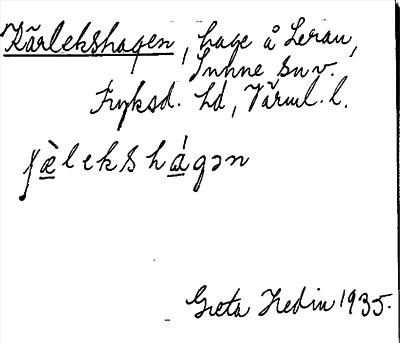 Kärlekshagen, hage å Leran,
Sunne sn v.
Fryksd. hd, Värml. l.
ʃæ̀lekshágən
Greta Hedin 1935.